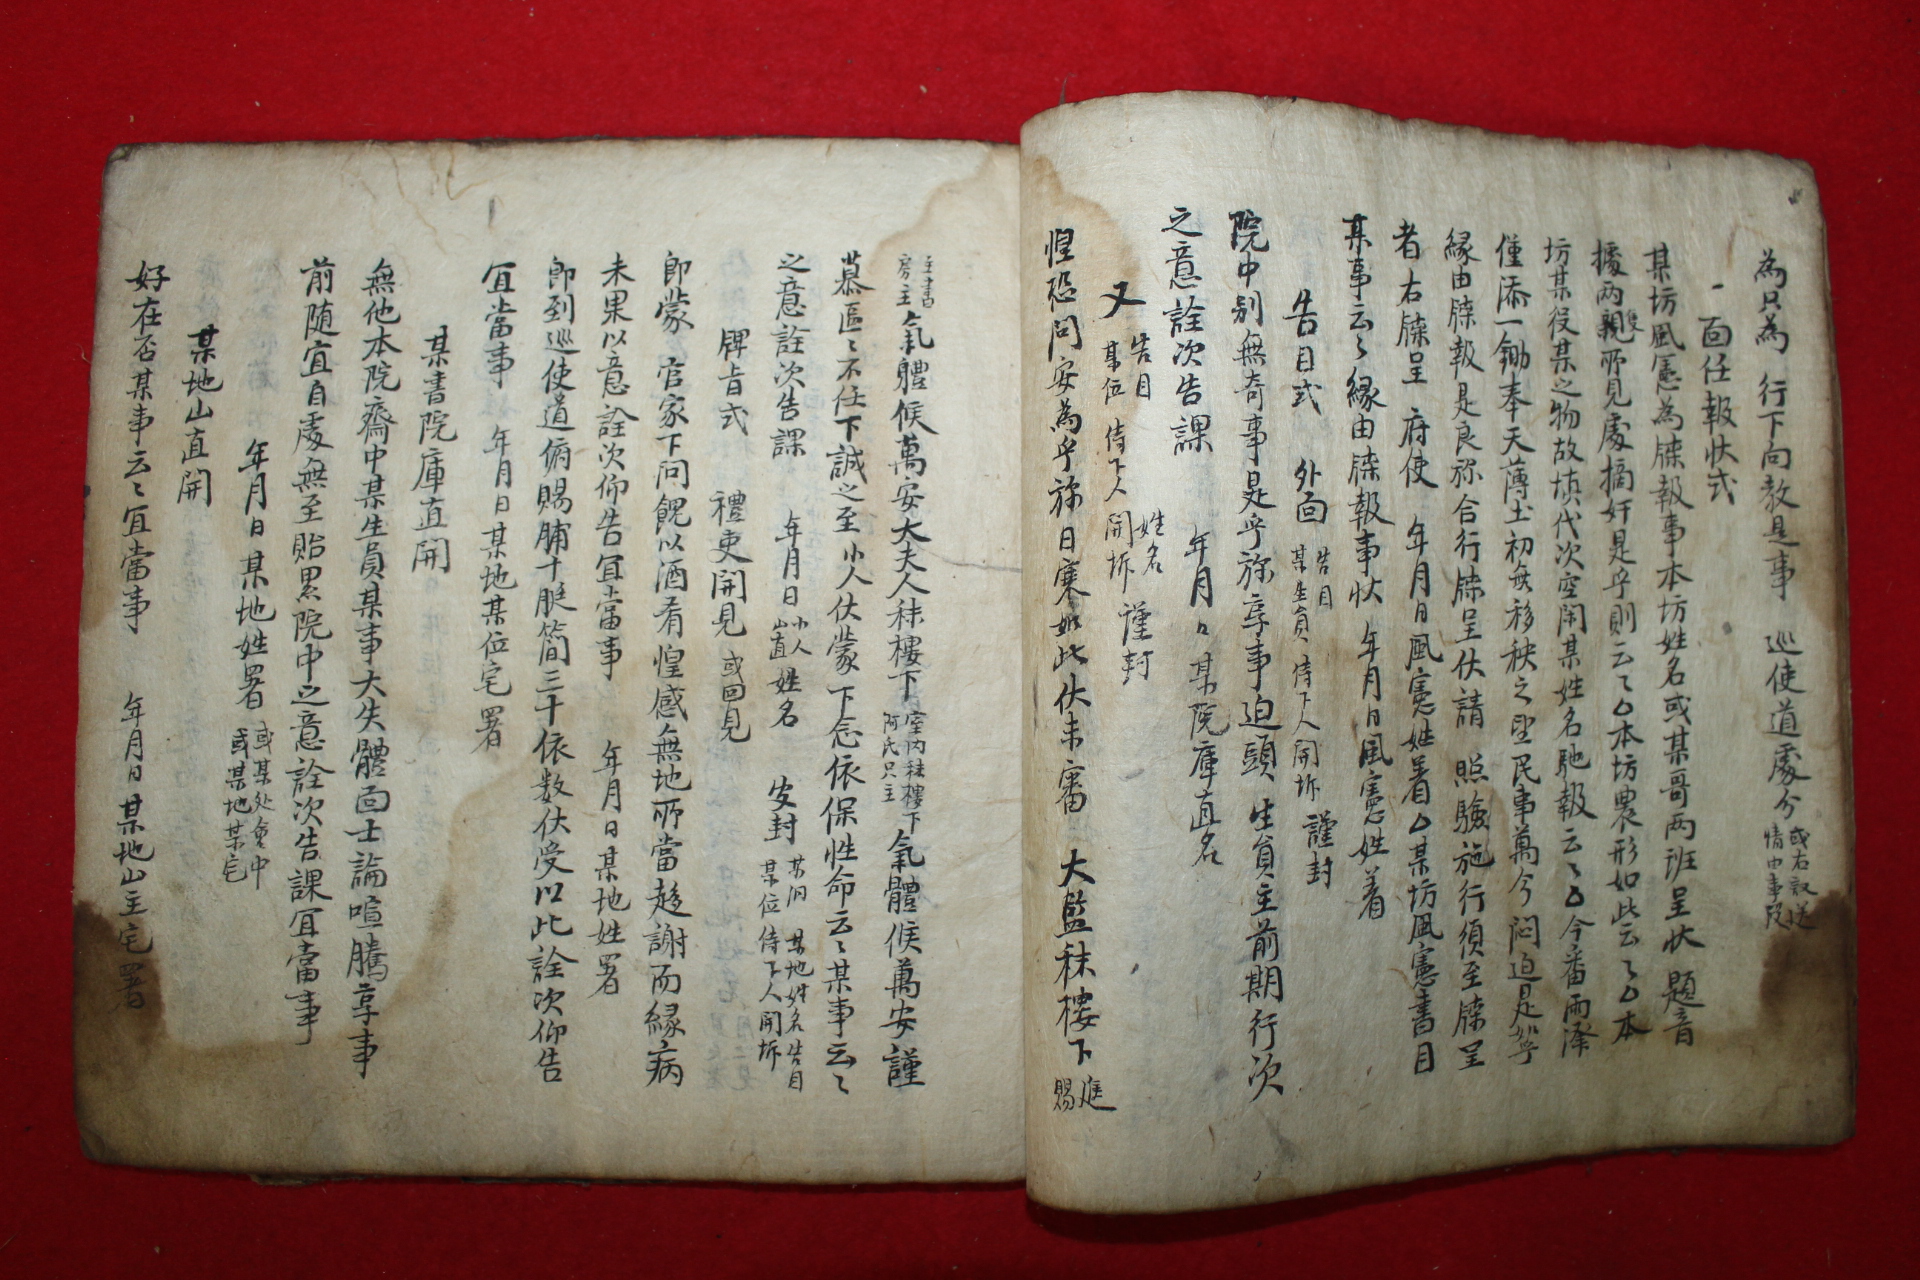 為只為 行下向教是事 巡使道處分 或右議送 情由事段
一面任報狀式
某坊風憲為牒報事本坊姓名或某哥兩班呈狀 題音
據兩隻親所見處摘奸是乎則云〻△本坊農形如此云〻△本
坊某役某之物故塡代次空閑某姓名馳報云〻△今番雨澤
僅添一鋤奉天薄土初無移秧之望民事萬分悶迫是如乎
緣由牒報是良旀合行牒呈伏請 照驗施行須至牒呈
者右牒呈 府使 年月日風憲姓着△某坊風憲書目
某事云〻緣由牒報事狀 年月日風憲姓着
告目式 外面 告目 某生員 侍下人開坼 謹封
院中別無奇事是乎旀享事迫頭 生員主前期行次
之意詮次告課 年月日某院庫直名
又 告目 某位 侍下人 開坼 姓名 謹封
惶恐問安為乎旀日寒如此伏未審 大監秣樓下 庭賜
主書 房主 氣體候萬安大夫人秣樓下 室內秣樓下 阿氏只主 氣體候萬安謹
慕區〻不任下誠之至小人伏蒙 下念依保性命云〻某事云〻
之意詮次告課 年月日 小人 山直 姓名 皮封 某洞 某位侍下人開坼 某地姓名告目
牌旨式 禮吏開見 或回見
卽蒙 官家下問餽以酒肴惶感無地所當趍謝而緣病
未果以意詮次仰告宜當事 年月日某地姓署
卽到巡使道俯賜脯十脡簡三十依数伏受以此詮次仰告
宜當事 年月日某地某位宅署
某書院庫直開
無他本院齋中某生員某事大失體面士論喧騰享事
前随宜自處無至貽累院中之意詮次告課宜當事
年月日某地姓署 或某処會中 或某地某宅
某地山直開
好在否某事云〻宜當事 年月日某地山主宅署